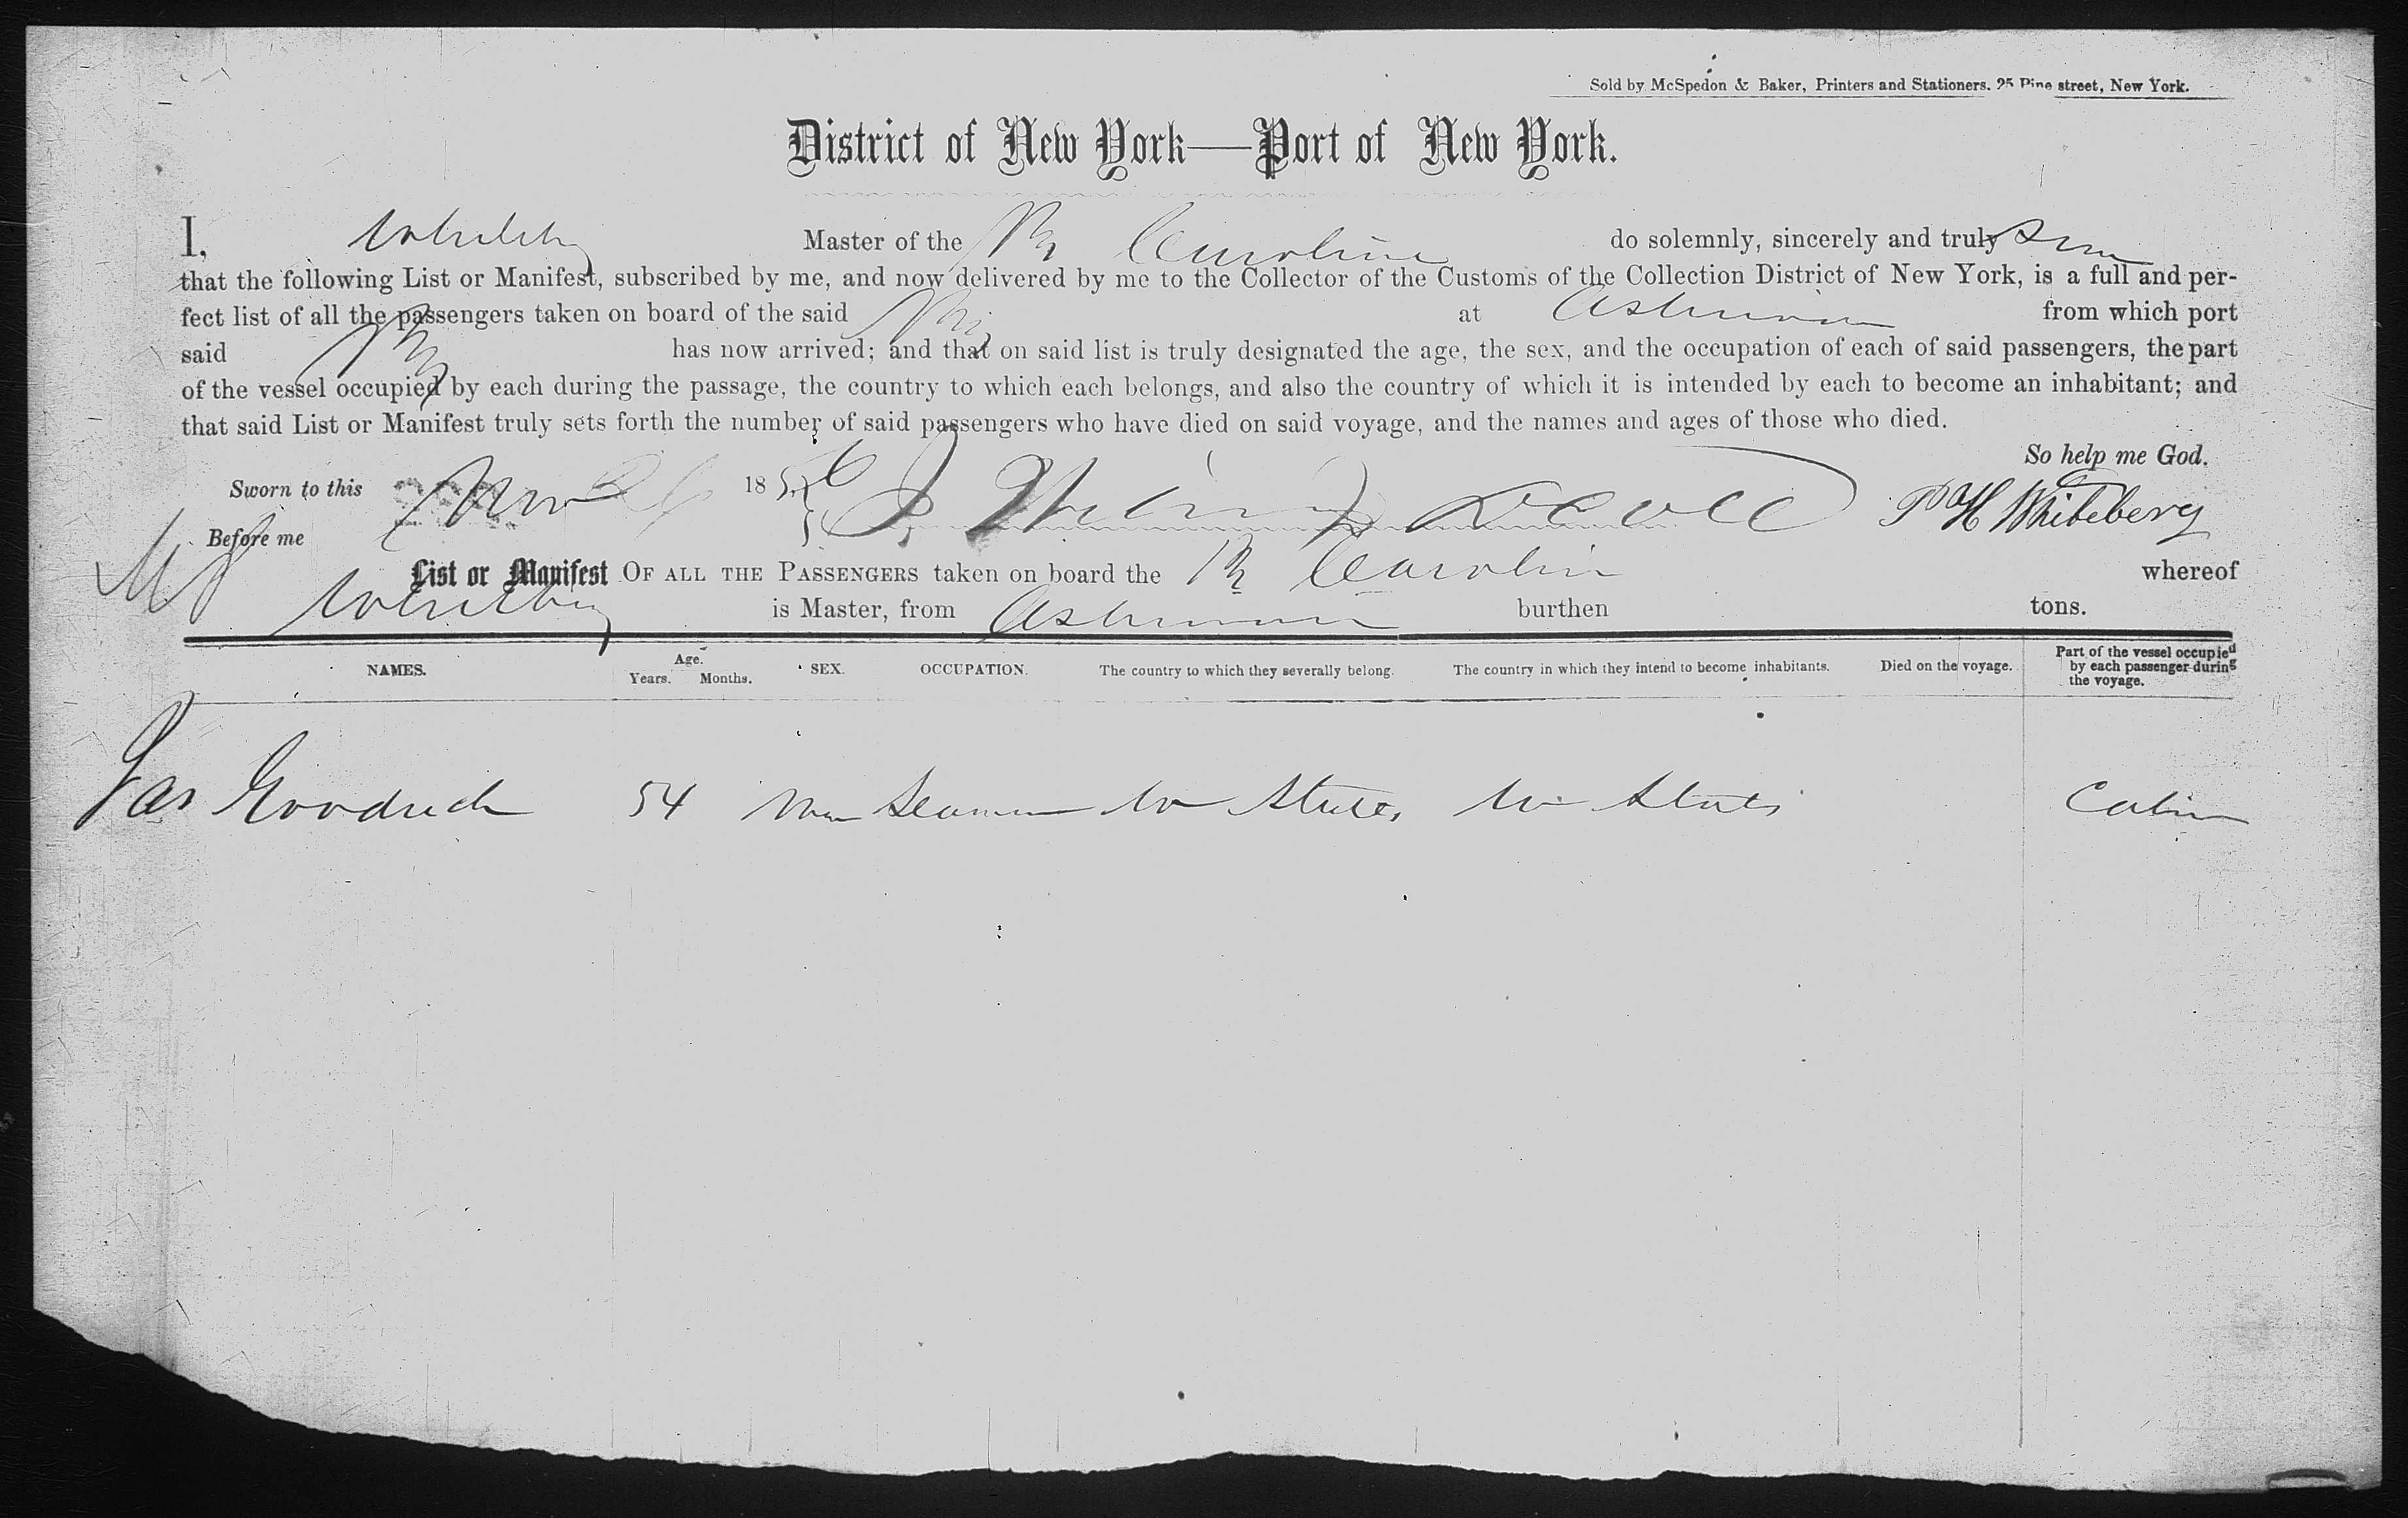 Sold by McSpedon & Baker, Printers and Stationers. 25 Pine street, New York.
District of New York—Port of New York.
I, Whiteberry Master of the Br Caroline do solemnly, sincerely and truly swear
that the following List or Manifest, subscribed by me, and now delivered by me to the Collector of the Customs of the Collection District of New York, is a full and per-
fect list of all the passengers taken on board of the said Brig at from which port
said Brig has now arrived; and that on said list is truly designated the age, the sex, and the occupation of each of said passengers, the part
of the vessel occupied by each during the passage, the country to which each belongs, and also the country of which it is intended by each to become an inhabitant; and
that said List or Manifest truly sets forth the number of said passengers who have died on said voyage, and the names and ages of those who died.
So help me God.
Sworn to this 1856 P H Whiteberry
Before me
List or Manifest OF ALL THE PASSENGERS taken on board the Br Caroline whereof
Whiteberry is Master, from burthen tons.
NAMES. Age. Years. Months. SEX. OCCUPATION. The country to which they severally belong. The country in which they intend to become inhabitants. Died on the voyage. Part of the vessel occupied by each passenger during the voyage.
Jas Goodrich 54 Man Seaman Un States Un States Cabin